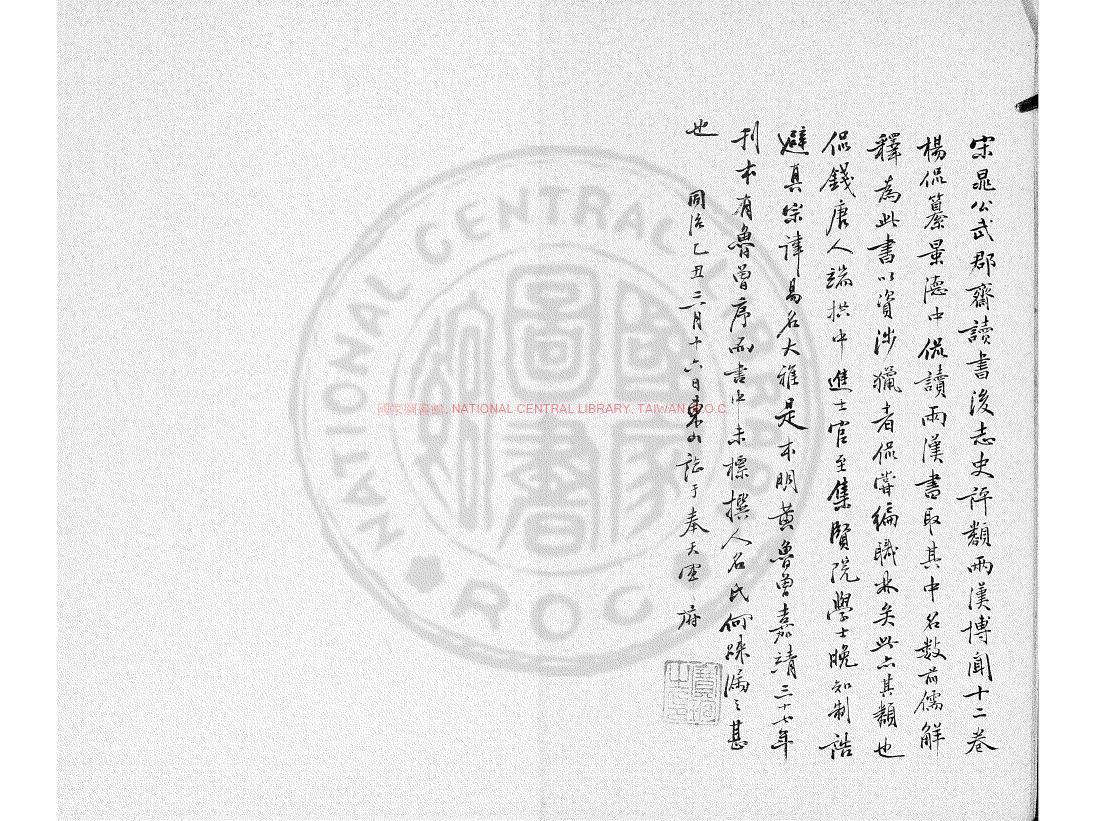 宋晁公武郡齋讀書後志史評類兩漢博聞十二卷
楊侃纂景德中侃讀兩漢書取其中名數前儒解
釋為此書以資涉獵者侃嘗編職林矣此亦其類也
侃錢唐人端拱中進士官至集賢院學士晚知制誥
避真宗諱易名大雅是本明黃魯曾嘉靖三十七年
刊本有魯曾序而書中未標撰人名氏何疎漏之甚
也
同治乙丑三月十六日東山誌于奉天
國家圖書館, NATIONAL CENTRAL LIBRARY, TAIWAN R.O.C
NATIONAL CENTRAL LIBRARY
ROC
國家圖書館